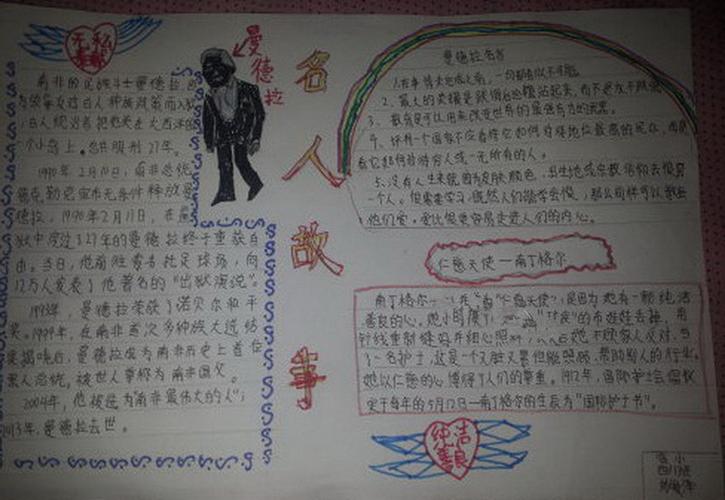 无私
奉献
曼德拉
名人故事
南非的民族斗士曼德拉,因
为领导反对白人种族隔离而入狱
,白人统治者把他关在大西洋的
小岛上。总共服刑27年。
1990年2月10日,南非总统
德克勒宣布无条件释放曼
德拉,1990年2月11日,在
狱中度过了27年的曼德拉终于重获自
由。当日,他前往索韦托足球场,向
12万人发表了他著名的“出狱演说”。
1993年,曼德拉荣获了诺贝尔和平
奖。1994年,在南非首次多种族大选结
果揭晓后,曼德拉成为南非历史上首位
黑人总统,被世人尊称为南非国父。
2004年,他被选为“南非最伟大的人”;
2013年,曼德拉去世。
曼德拉名言
1、在事情未完成之前,一切都看似不可能。
2、最大的
3、教育是可以用来改变世界的最强有力的武器。
4、评判一个国家不应看待它如何对待地位最高的民众,而是
看它如何对待穷人或一无所有的人。
5、没有人生来就因为皮肤颜色、出生地或宗教信仰去恨另
一个人。恨需要学习,既然人们能学会恨,那么同样可以教会
他们爱,爱比恨更容易走进人们的内心。
仁慈天使—南丁格尔
南丁格尔 “仁慈天使”,是因为她有一颗纯洁
善良的心。她小时候 的布娃娃去掉,用
针线重新缝好并细心照 她不顾家人反对,当
了一名护士,这是一个又脏又累但能照顾、帮助别人的行业。
她以仁慈的心博得了人们的尊重。1912年,国际护士会倡议
定于每年的5月12日—南丁格尔的生辰为“国际护士节”。
纯洁
善良